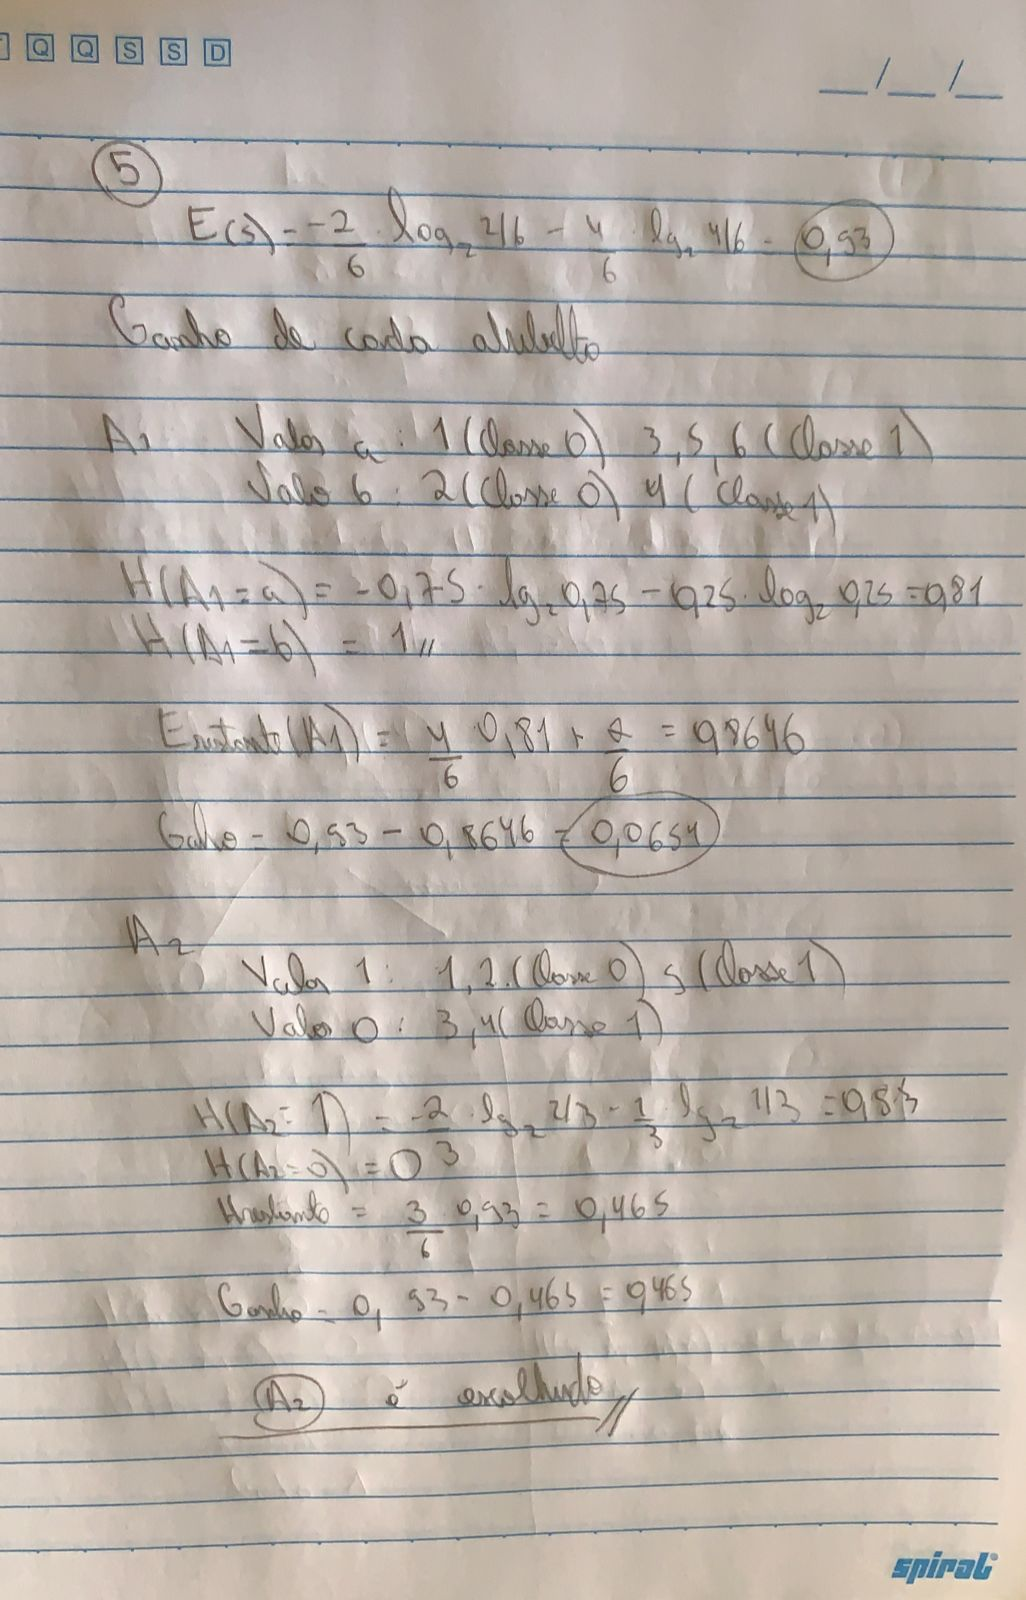 Q Q S S D
__/__/__
5
E(s) = -2/6 · log₂ 2/6 - 4/6 · lg₂ 4/6 = 0,93
Ganho de cada atributo
A1 Valor a : 1 (Classe 0) 3, 5, 6 (Classe 1)
Valo b : 2 (Classe 0) 4 (Classe 1)
H(A1=a) = -0,75 · lg₂ 0,75 - 0,25 · log₂ 0,25 = 0,81
H(A1=b) = 1//
Erestante(A1) = 4/6 0,81 + 2/6 = 0,8646
Ganho = 0,93 - 0,8646 = 0,0654
A2
Valor 1 : 1, 2 (Classe 0) 5 (Classe 1)
Valo 0 : 3, 4 (Classe 1)
H(A2=1) = -2/3 · lg₂ 2/3 - 1/3 lg₂ 1/3 = 0,93
H(A2=0) = 0
Hrestante = 3/6 0,93 = 0,465
Ganho = 0,93 - 0,465 = 0,465
A2 é escolhido//
spiral